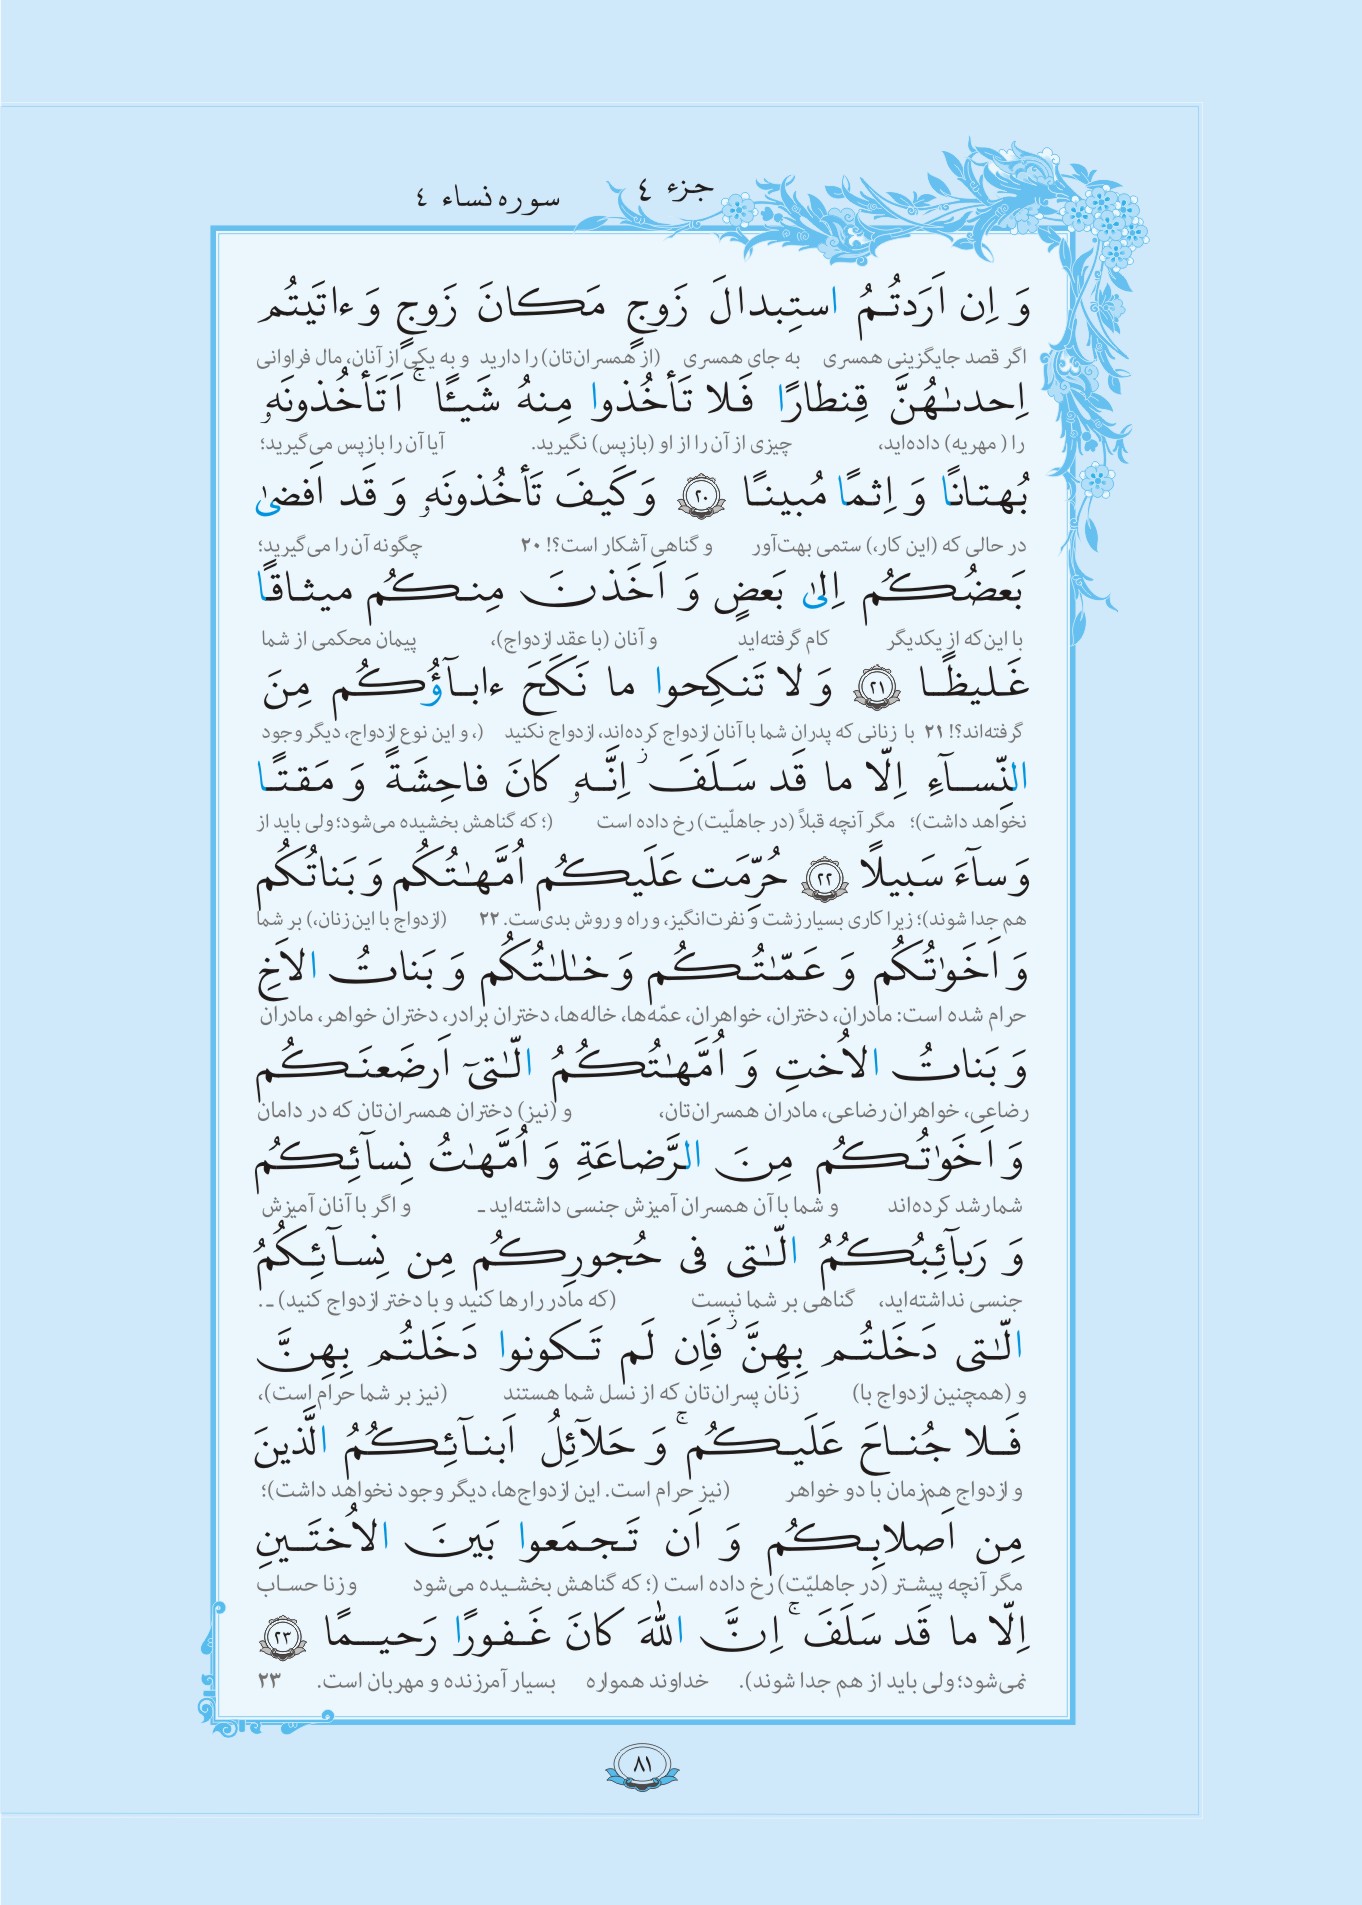 جزء ٤
سوره نساء ٤
وَ اِن اَرَدتُـمُ استِبدالَ زَوجٍ مَـكانَ زَوجٍ وَ ءاتَيتُم
اگر قصد جایگزینی همسری به جای همسری (از همسران‌تان) را دارید و به یکی از آنان، مال فراوانی
اِحدىٰهُنَّ قِنطارًا فَـلا تَـأخُذوا مِنهُ شَيـًٔا ۚ اَتَأخُذونَهۥ
را ( مهریه) داده‌اید، چیزی از آن را از او (بازپس) نگیرید. آیا آن را بازپس می‌گیرید؛
بُهتانًا وَ اِثمًا مُبينًا ٢٠ وَ كَيفَ تَأخُذونَهۥ وَ قَد اَفضىٰ
در حالی که (این کار،) ستمی بهت‌آور و گناهی آشکار است؟! ۲۰ چگونه آن را می‌گیرید؛
بَعضُكُم اِلىٰ بَعضٍ وَ اَخَذنَ مِنكُم ميثاقًا
با این‌که از یکدیگر کام گرفته‌اید و آنان (با عقد ازدواج)، پیمان محکمی از شما
غَليظًا ٢١ وَ لا تَنكِحوا ما نَكَحَ ءابـآؤُكُم مِنَ
گرفته‌اند؟! ۲۱ با زنانی که پدران شما با آنان ازدواج کرده‌اند، ازدواج نکنید (، و این نوع ازدواج، دیگر وجود
النِّسـآءِ اِلّا ما قَد سَلَفَ ۥز اِنَّـهۥ كانَ فاحِشَةً وَ مَقتًا
نخواهد داشت)؛ مگر آنچه قبلاً (در جاهلّیت) رخ داده است (؛ که گناهش بخشیده می‌شود؛ ولی باید از
وَ سآءَ سَبيلًا ٢٢ حُرِّمَت عَلَيكُم اُمَّهـٰتُكُم وَ بَناتُكُم
هم جدا شوند)؛ زیرا کاری بسیار زشت و نفرت‌انگیز، و راه و روش بدی‌ست. ۲۲ (ازدواج با این زنان،) بر شما
وَ اَخَوٰتُكُم وَ عَمّـٰتُـكُم وَ خـٰلـٰتُكُم وَ بَناتُ الاَخِ
حرام شده است: مادران، دختران، خواهران، عمّه‌ها، خاله‌ها، دختران برادر، دختران خواهر، مادران
وَ بَناتُ الاُختِ وَ اُمَّهـٰتُكُمُ الّـٰتىٓ اَرضَعنَـكُم
رضاعی، خواهران رضاعی، مادران همسران‌تان، و (نیز) دختران همسران‌تان که در دامان
وَ اَخَوٰتُـكُم مِنَ الرَّضاعَةِ وَ اُمَّهـٰتُ نِسآئِكُم
شما رشد کرده‌اند و شما با آن همسران آمیزش جنسی داشته‌اید ـ و اگر با آنان آمیزش
وَ رَبآئِبُكُمُ الّـٰتى فى حُجورِكُم مِن نِسـآئِـكُمُ
جنسی نداشته‌اید، گناهی بر شما نیست (که مادر را رها کنید و با دختر ازدواج کنید) ـ .
الّـٰتى دَخَلتُـم بِهِنَّ ز فَاِن لَم تَـكونوا دَخَلتُم بِهِنَّ
و (همچنین ازدواج با) زنان پسران‌تان که از نسل شما هستند (نیز بر شما حرام است)،
فَـلا جُنـاحَ عَلَيـكُم ۚ وَ حَلآئِلُ اَبنـآئِـكُمُ الَّذينَ
و ازدواج هم‌زمان با دو خواهر (نیز حرام است. این ازدواج‌ها، دیگر وجود نخواهد داشت)؛
مِن اَصلابِـكُم وَ اَن تَـجـمَعوا بَينَ الاُختَـينِ
مگر آنچه پیشـتر (در جاهلیّت) رخ داده است (؛ که گناهش بخشـیده می‌شود و زنا حسـاب
اِلّا ما قَد سَلَفَ ۚ اِنَّ اللهَ كانَ غَـفورًا رَحيـمًا ٢٣
نمی‌شود؛ ولی باید از هم جدا شوند). خداوند همواره بسیار آمرزنده و مهربان است. ۲۳
٨١